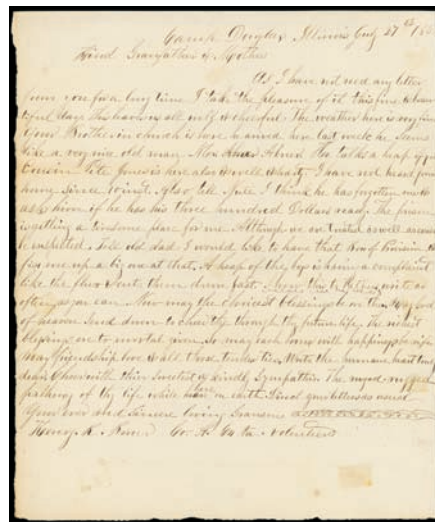 Camp Douglas, Illinois July 27th 186
Kind Granfather & Mother
As I have not recd any letter
from you for a long time I take the pleasure of it this fine & beau
tiful day. This leaves us all only & cheerful. The weather here is very fine
Your Brother in church is here he arived here last week he seems
like a very nice old man. Talks a heap of
Cousin Pete Jones is here also & well & hearty I have not heard from
home since I wrist. Also tell I think he has forgotten me &
ask him if he has his three hundred Dollars ready. The prison
is getting a tiresome place for me Although we are treated as well as could
be expected. Tell old dad I would like to have that Box of Provision &
fix me up a big one at that. A heap of the boys is having a complaint
like the flux & cuts them down fast. write as
often as you can. Now may the choicest blessings be on thee May god
of heaven send down to cheer thy through thy future life. The richest
blessings are to mortal given. So may each away with happiness be rife
May friendship love & all those tender ties. Write the humane heart
dear Cheer with thier sweetest & kindly Sympathies. The most rugged
pathway of thy life while here on earth. Send your letters as usual
Your ever and Sincere loving Grandson
Henry Co. A. Volunteers